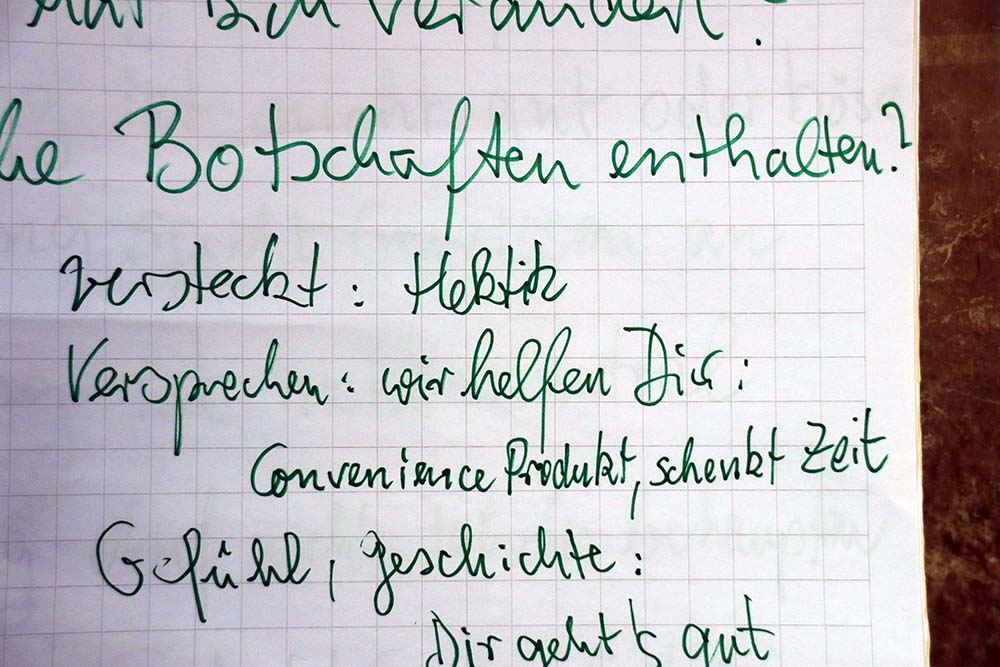 sich verändert?
he Botschaften enthalten?
versteckt: Hektik
Versprechen: wir helfen Dir:
Convenience Produkt, schenkt Zeit
Gefühl, geschichte:
Dir geht's gut